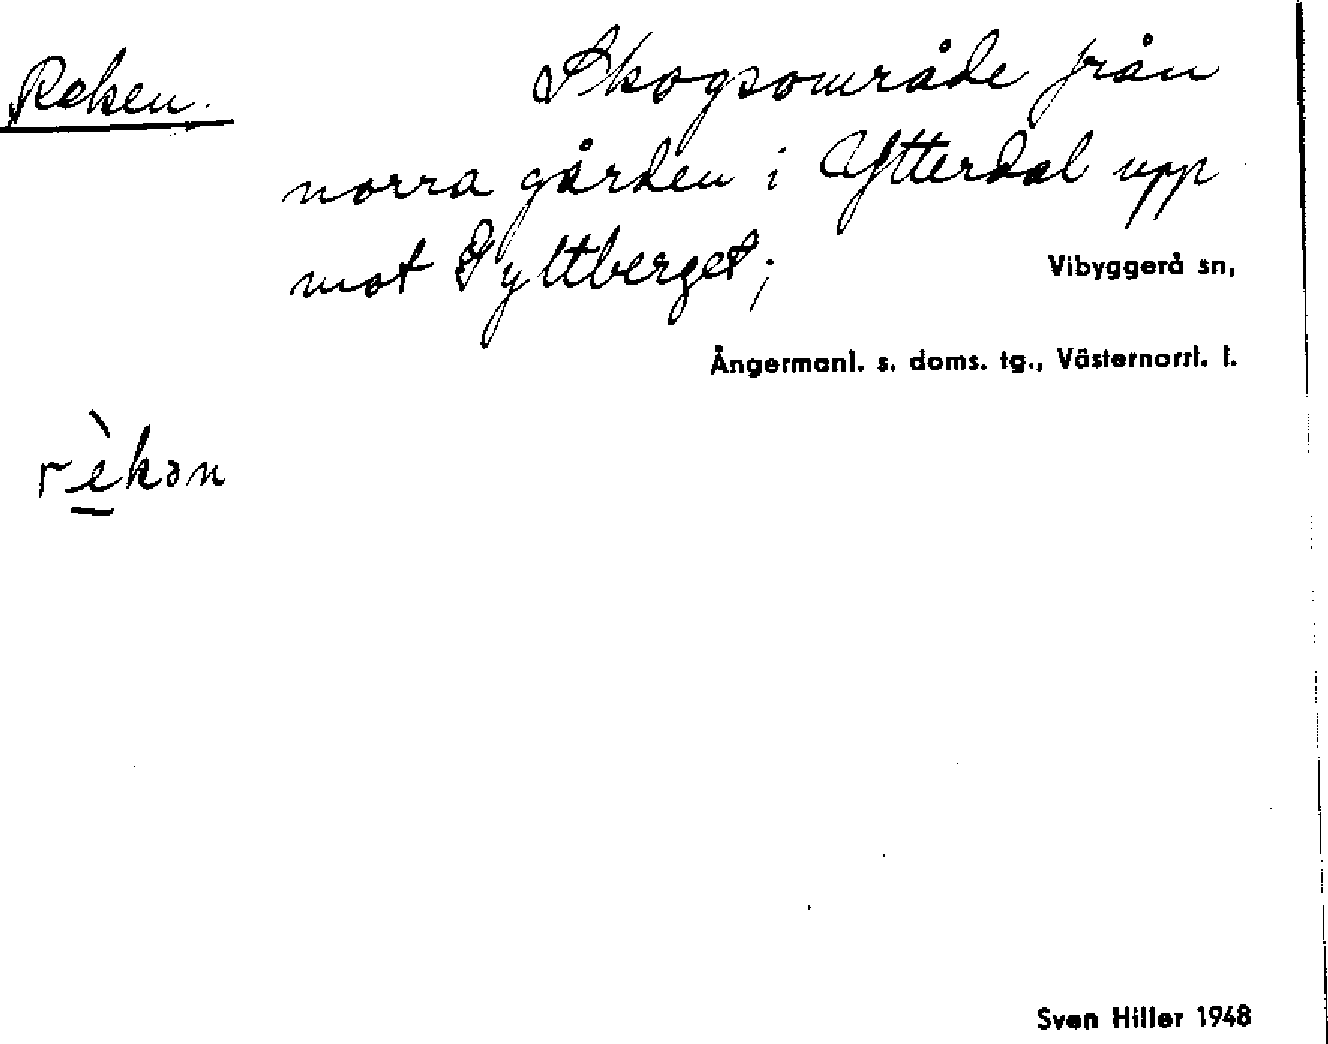 Reken.
Skogsområde från
norra gården i Ytterdal upp
mot Gyltberget;
Vibyggerå sn,
Ångermanl. s. doms. tg., Västernorrl. l.
rèkən
Sven Hiller 1948